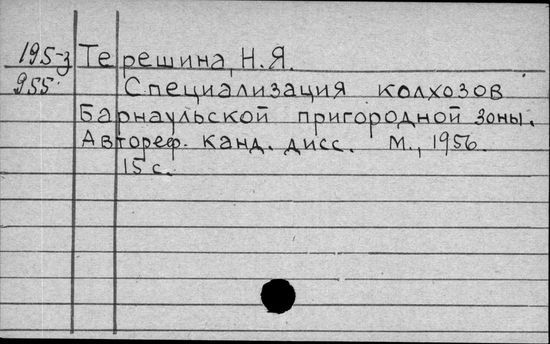 195-3 Терешина, Н.Я.
955 Специализация колхозов
Барнаульской пригородной зоны.
Автореф. канд. дисс. М., 1956.
15 с.